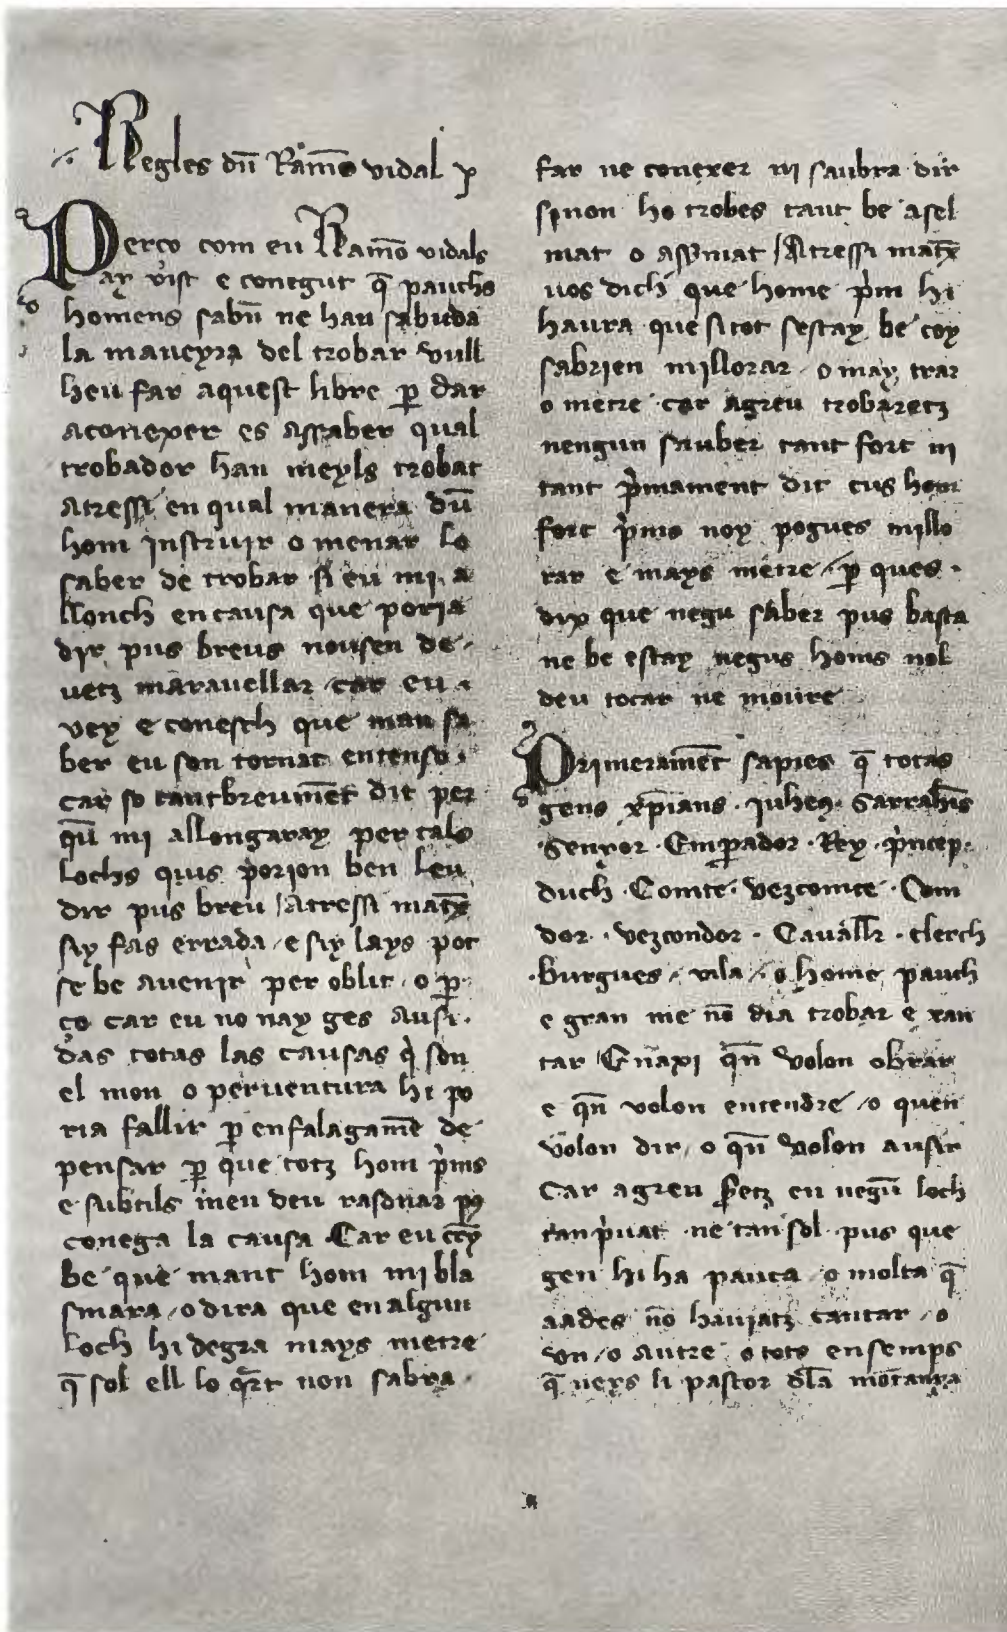 Regles dū Ramō vidal
Perço com eu Ramō vidals
ay vist e conegut q̄ pauchs
homens sabū ne han sabuda
la maneyra del trobar vull
heu far aquest libre ꝑ dar
aconexer es assaber qual
trobador han meyls trobat
Atressi en qual manera dū
hom instruir o menar lo
saber de trobar si eu mi a
llonch en causa que poria
dir pus breus nousen de
uetz marauellar car eu
vey e conesch que man sa
ber eu son tornat entenso
car so tantbreumēt dit per
qū mi allongaray per tals
lochs quis porion ben leu
dir pus breu / Atressi matx̄
siy fas errada / e siy lays pot
se be auenir per oblit / o ꝑ
ço car eu no nay ges ausi
das totas las causas q̇ son
el mon o peruentura hi po
ria fallir ꝑ enfalagamē de
pensar ꝑ que totz hom p̓ms
e subtils men deu rasonar pꝯ
conega la causa . Car eu crey
be que mant hom mi bla
smara / o dira que en algun
loch hi degra mays metre
q̄ sol ell lo qͣrt non sabra
far ne conexer ni saubra dir
sinon ho trobes tant be asel
mat o assimat / Atressi matx̄
uos dich que home p̓m hi
haura que si tot sestay be coy
sabrien millorar / o may trar
o metre car agreu trobaretz
nengun sauber tant fort ni
tant p̓mament dit cus hom
fort p̓ms noy pogues millo
rar e mays metre / ꝑ ques
dix que negu saber pus basta
ne be estay negus homs nol
deu tocar ne moure
Primeramēt sapies q̄ totas
gens xp̄ians . juheꝯ . Sarrahīs
Senyor . Emꝑador . Rey . p̓ncep .
duch . Comte . vezcomte . Com
dor . vezcondor . Cauall̄r . clerch
. burgues / vila / o home pauch
e gran me nō dia trobar e xan
tar / Enaxi qn̄ volon obrar
e qn̄ volon entendre / o quen
volon dir / o qn̄ volon ausir
Car agreu s̓etz en negū loch
tan p̓uat . ne tan sol . pus que
gen hi ha pauca / o molta q̄
aades nō haujatz cantar / o
vn / o autre / o tots ensemps
q̄ neys li pastor dl̄a mōtanya